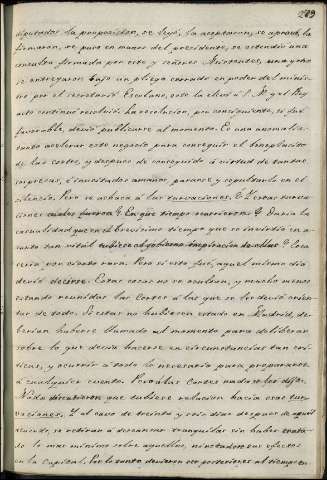 289
diputados la proposicion, se leyó, la aceptaron, se aprobó, la
firmaron, se puso en manos del presidente, se estendió una
consulta firmada por este y señores Ministros, una y otra
se entregaron bajo un pliego cerrado en poder del minis-
tro por el secretario Escolano, este la elevó á S. M. y el Rey
acto continuo resolvió. La resolucion, por consiguiente, si fué
favorable, debió publicarse al momento. Es una anomalia
tanto acelerar este negocio para conseguir el beneplácito
de las cortes, y despues de conseguido á virtud de tantas
sorpresas, é inusitados amaños, pararse y sepultarlo en el
silencio. Pero se achaca á las turbaciones. ¿Y estas turbacio-
ciones cuales fueron? ¿En que tiempo ocurrieron? ¿Daria la
casualidad que en el brevísimo tiempo que se invirdió en a-
cuerdo tan vital tubiese el gobierno inspiracion de ellas? Cosa
seria por cierto rara. Pero si esto fué, aquel mismo dia
debió decirse. Estas cosas no se ocultan, y mucho menos
estando reunidas las Cortes á las que se les debió enten-
tar de todo. Si estas no hubiesen estado en Madrid, de-
berian haberse llamado al momento para deliberar
sobre lo que debia hacerse en circunstancias tan crí-
ticas, y ocurrir á todo lo necesario para prepararse
á cualquier evento. Pero á las Cortes nada se les dijo.
Nada discutieron que tubiese relacion hácia esas tur-
vaciones. Y al cavo de treinta y seis dias despues de aquel
acuerdo, se retiran á descansar tranquilas sin haber trata-
do lo mas mínimo sobre aquellas, ni notado sus efectos
en la Capital. Por lo tanto debieron ser posteriores al tiempo en